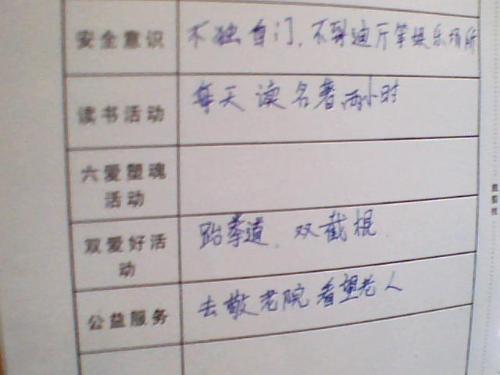 安全意识 不独自门，不到迪厅等娱乐场所
读书活动 每天读名著两小时
六爱塑魂
活动
双爱好活 跆拳道、双截棍
动
公益服务 去敬老院看望老人